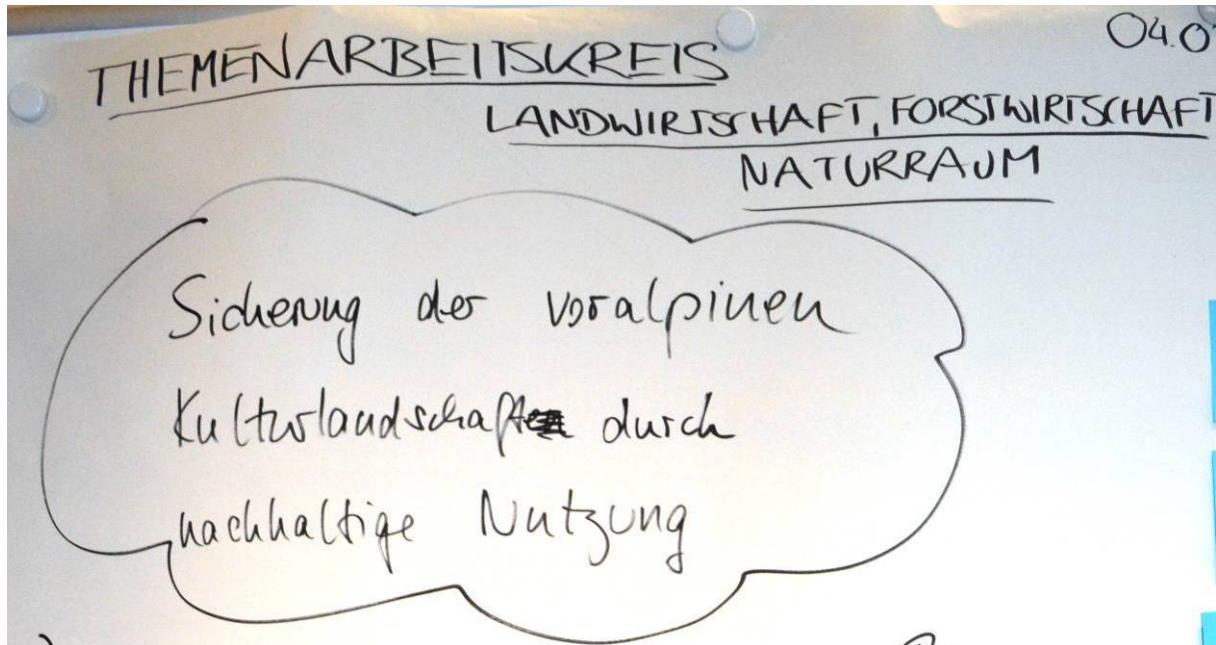 04.0
THEMENARBEITSKREIS
LANDWIRTSCHAFT, FORSTWIRTSCHAFT
NATURRAUM
Sicherung der voralpinen
Kulturlandschaft durch
nachhaltige Nutzung